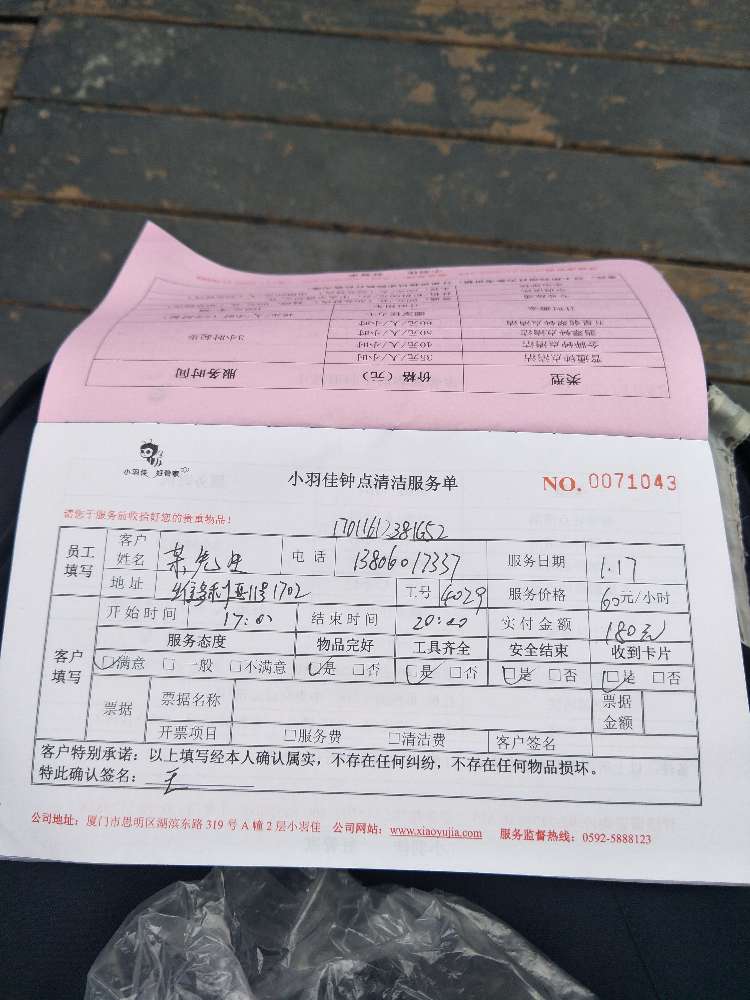 小羽佳 好管家
小羽佳钟点清洁服务单
NO. 0071043
请您于服务前收拾好您的贵重物品！
17011617381652
员工填写 客户姓名 某先生 电话 13806017337 服务日期 1.17
地址 维多利亚11号1702 工号 4029 服务价格 60元/小时
开始时间 17:00 结束时间 20:00 实付金额 180元
客户填写 服务态度 物品完好 工具齐全 安全结束 收到卡片
□满意 □一般 □不满意 □是 □否 □是 □否 □是 □否 □是 □否
票据 票据名称 票据金额
开票项目 □服务费 □清洁费 客户签名
客户特别承诺：以上填写经本人确认属实，不存在任何纠纷，不存在任何物品损坏。
特此确认签名：
公司地址：厦门市思明区湖滨东路 319 号 A 幢 2 层小羽佳 公司网站：www.xiaoyujia.com 服务监督热线：0592-5888123
类型 价格（元） 服务时间
普通钟点清洁 35元/人/小时 3小时起步
金牌钟点清洁 40元/人/小时